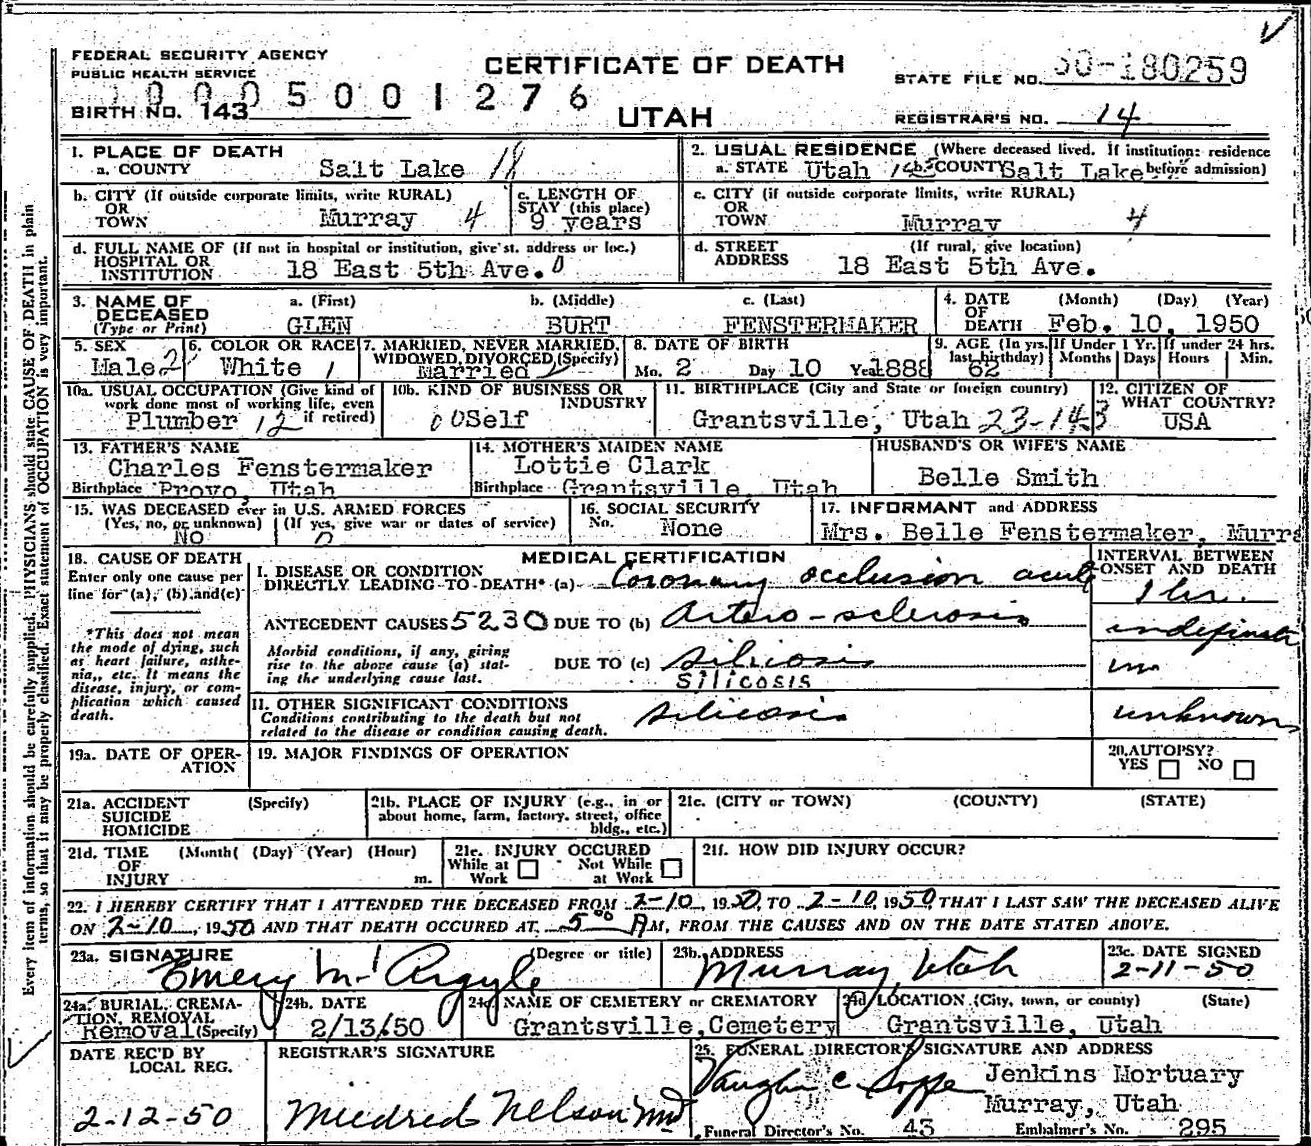 FEDERAL SECURITY AGENCY
PUBLIC HEALTH SERVICE
CERTIFICATE OF DEATH
UTAH
STATE FILE NO. 50-180259
0005001276
BIRTH NO. 143
REGISTRAR'S NO. 14
1. PLACE OF DEATH
a. COUNTY Salt Lake 18
2. USUAL RESIDENCE (Where deceased lived. If institution: residence before admission)
a. STATE Utah b. COUNTY Salt Lake
b. CITY (If outside corporate limits, write RURAL) OR TOWN Murray 4
c. LENGTH OF STAY (this place) 9 years
c. CITY (if outside corporate limits, write RURAL) OR TOWN Murray 4
d. FULL NAME OF (If not in hospital or institution, give st. address or loc.) HOSPITAL OR INSTITUTION 18 East 5th Ave. 0
d. STREET ADDRESS (If rural, give location) 18 East 5th Ave.
3. NAME OF DECEASED (Type or Print)
a. (First) GLEN
b. (Middle) BURT
c. (Last) FENSTERMAKER
4. DATE OF DEATH (Month) (Day) (Year) Feb. 10, 1950
5. SEX Male 2
6. COLOR OR RACE White 1
7. MARRIED, NEVER MARRIED, WIDOWED, DIVORCED (Specify) Married
8. DATE OF BIRTH Mo. 2 Day 10 Year 1888
9. AGE (In yrs. last birthday) 62
If Under 1 Yr. Months Days
If under 24 hrs. Hours Min.
10a. USUAL OCCUPATION (Give kind of work done most of working life, even if retired) Plumber 12
10b. KIND OF BUSINESS OR INDUSTRY Self
11. BIRTHPLACE (City and State or foreign country) Grantsville, Utah 23-143
12. CITIZEN OF WHAT COUNTRY? USA
13. FATHER'S NAME Charles Fenstermaker
Birthplace Provo, Utah
14. MOTHER'S MAIDEN NAME Lottie Clark
Birthplace Grantsville, Utah
HUSBAND'S OR WIFE'S NAME Belle Smith
15. WAS DECEASED ever in U.S. ARMED FORCES
(Yes, no, or unknown) (If yes, give war or dates of service)
No 0
16. SOCIAL SECURITY No. None
17. INFORMANT and ADDRESS
Mrs. Belle Fenstermaker, Murra
18. CAUSE OF DEATH
Enter only one cause per line for (a), (b) and (c)
*This does not mean the mode of dying, such as heart failure, asthenia, etc. It means the disease, injury, or complication which caused death.
MEDICAL CERTIFICATION
INTERVAL BETWEEN ONSET AND DEATH
I. DISEASE OR CONDITION DIRECTLY LEADING TO DEATH* (a) Coronary occlusion acute 1 hr.
ANTECEDENT CAUSES 5230 DUE TO (b) Artero-sclerosis indefinate
Morbid conditions, if any, giving rise to the above cause (a) stating the underlying cause last.
DUE TO (c) silicosis
silicosis
II. OTHER SIGNIFICANT CONDITIONS
Conditions contributing to the death but not related to the disease or condition causing death.
silicosis unknown
19a. DATE OF OPERATION
19. MAJOR FINDINGS OF OPERATION
20. AUTOPSY? YES NO
21a. ACCIDENT SUICIDE HOMICIDE (Specify)
21b. PLACE OF INJURY (e.g., in or about home, farm, factory, street, office bldg., etc.)
21c. (CITY or TOWN) (COUNTY) (STATE)
21d. TIME OF INJURY (Month( (Day) (Year) (Hour) m.
21e. INJURY OCCURED While at Work Not While at Work
21f. HOW DID INJURY OCCUR?
22. I HEREBY CERTIFY THAT I ATTENDED THE DECEASED FROM 2-10, 1950, TO 2-10, 1950, THAT I LAST SAW THE DECEASED ALIVE
ON 2-10, 1950 AND THAT DEATH OCCURED AT 5 00 AM, FROM THE CAUSES AND ON THE DATE STATED ABOVE.
23a. SIGNATURE (Degree or title) Emery Mc Argyle
23b. ADDRESS Murray Utah
23c. DATE SIGNED 2-11-50
24a. BURIAL, CREMATION, REMOVAL (Specify) Removal
24b. DATE 2/13/50
24c. NAME OF CEMETERY or CREMATORY Grantsville, Cemetery
24d. LOCATION (City, town, or county) (State) Grantsville, Utah
DATE REC'D BY LOCAL REG. 2-12-50
REGISTRAR'S SIGNATURE Mildred Nelson MD
25. FUNERAL DIRECTOR'S SIGNATURE AND ADDRESS
Vaughn C
Jenkins Mortuary
Murray, Utah
Funeral Director's No. 43 Embalmer's No. 295
Every item of information should be carefully supplied. PHYSICIANS should state CAUSE OF DEATH in plain
terms, so that it may be properly classified. Exact statement of OCCUPATION is very important.